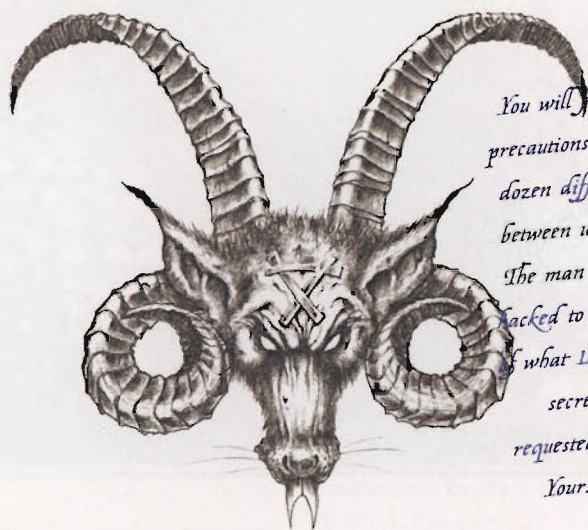 You will
precautions
dozen diff
between u
The man
hacked to
of what L
secre
requested
Yours